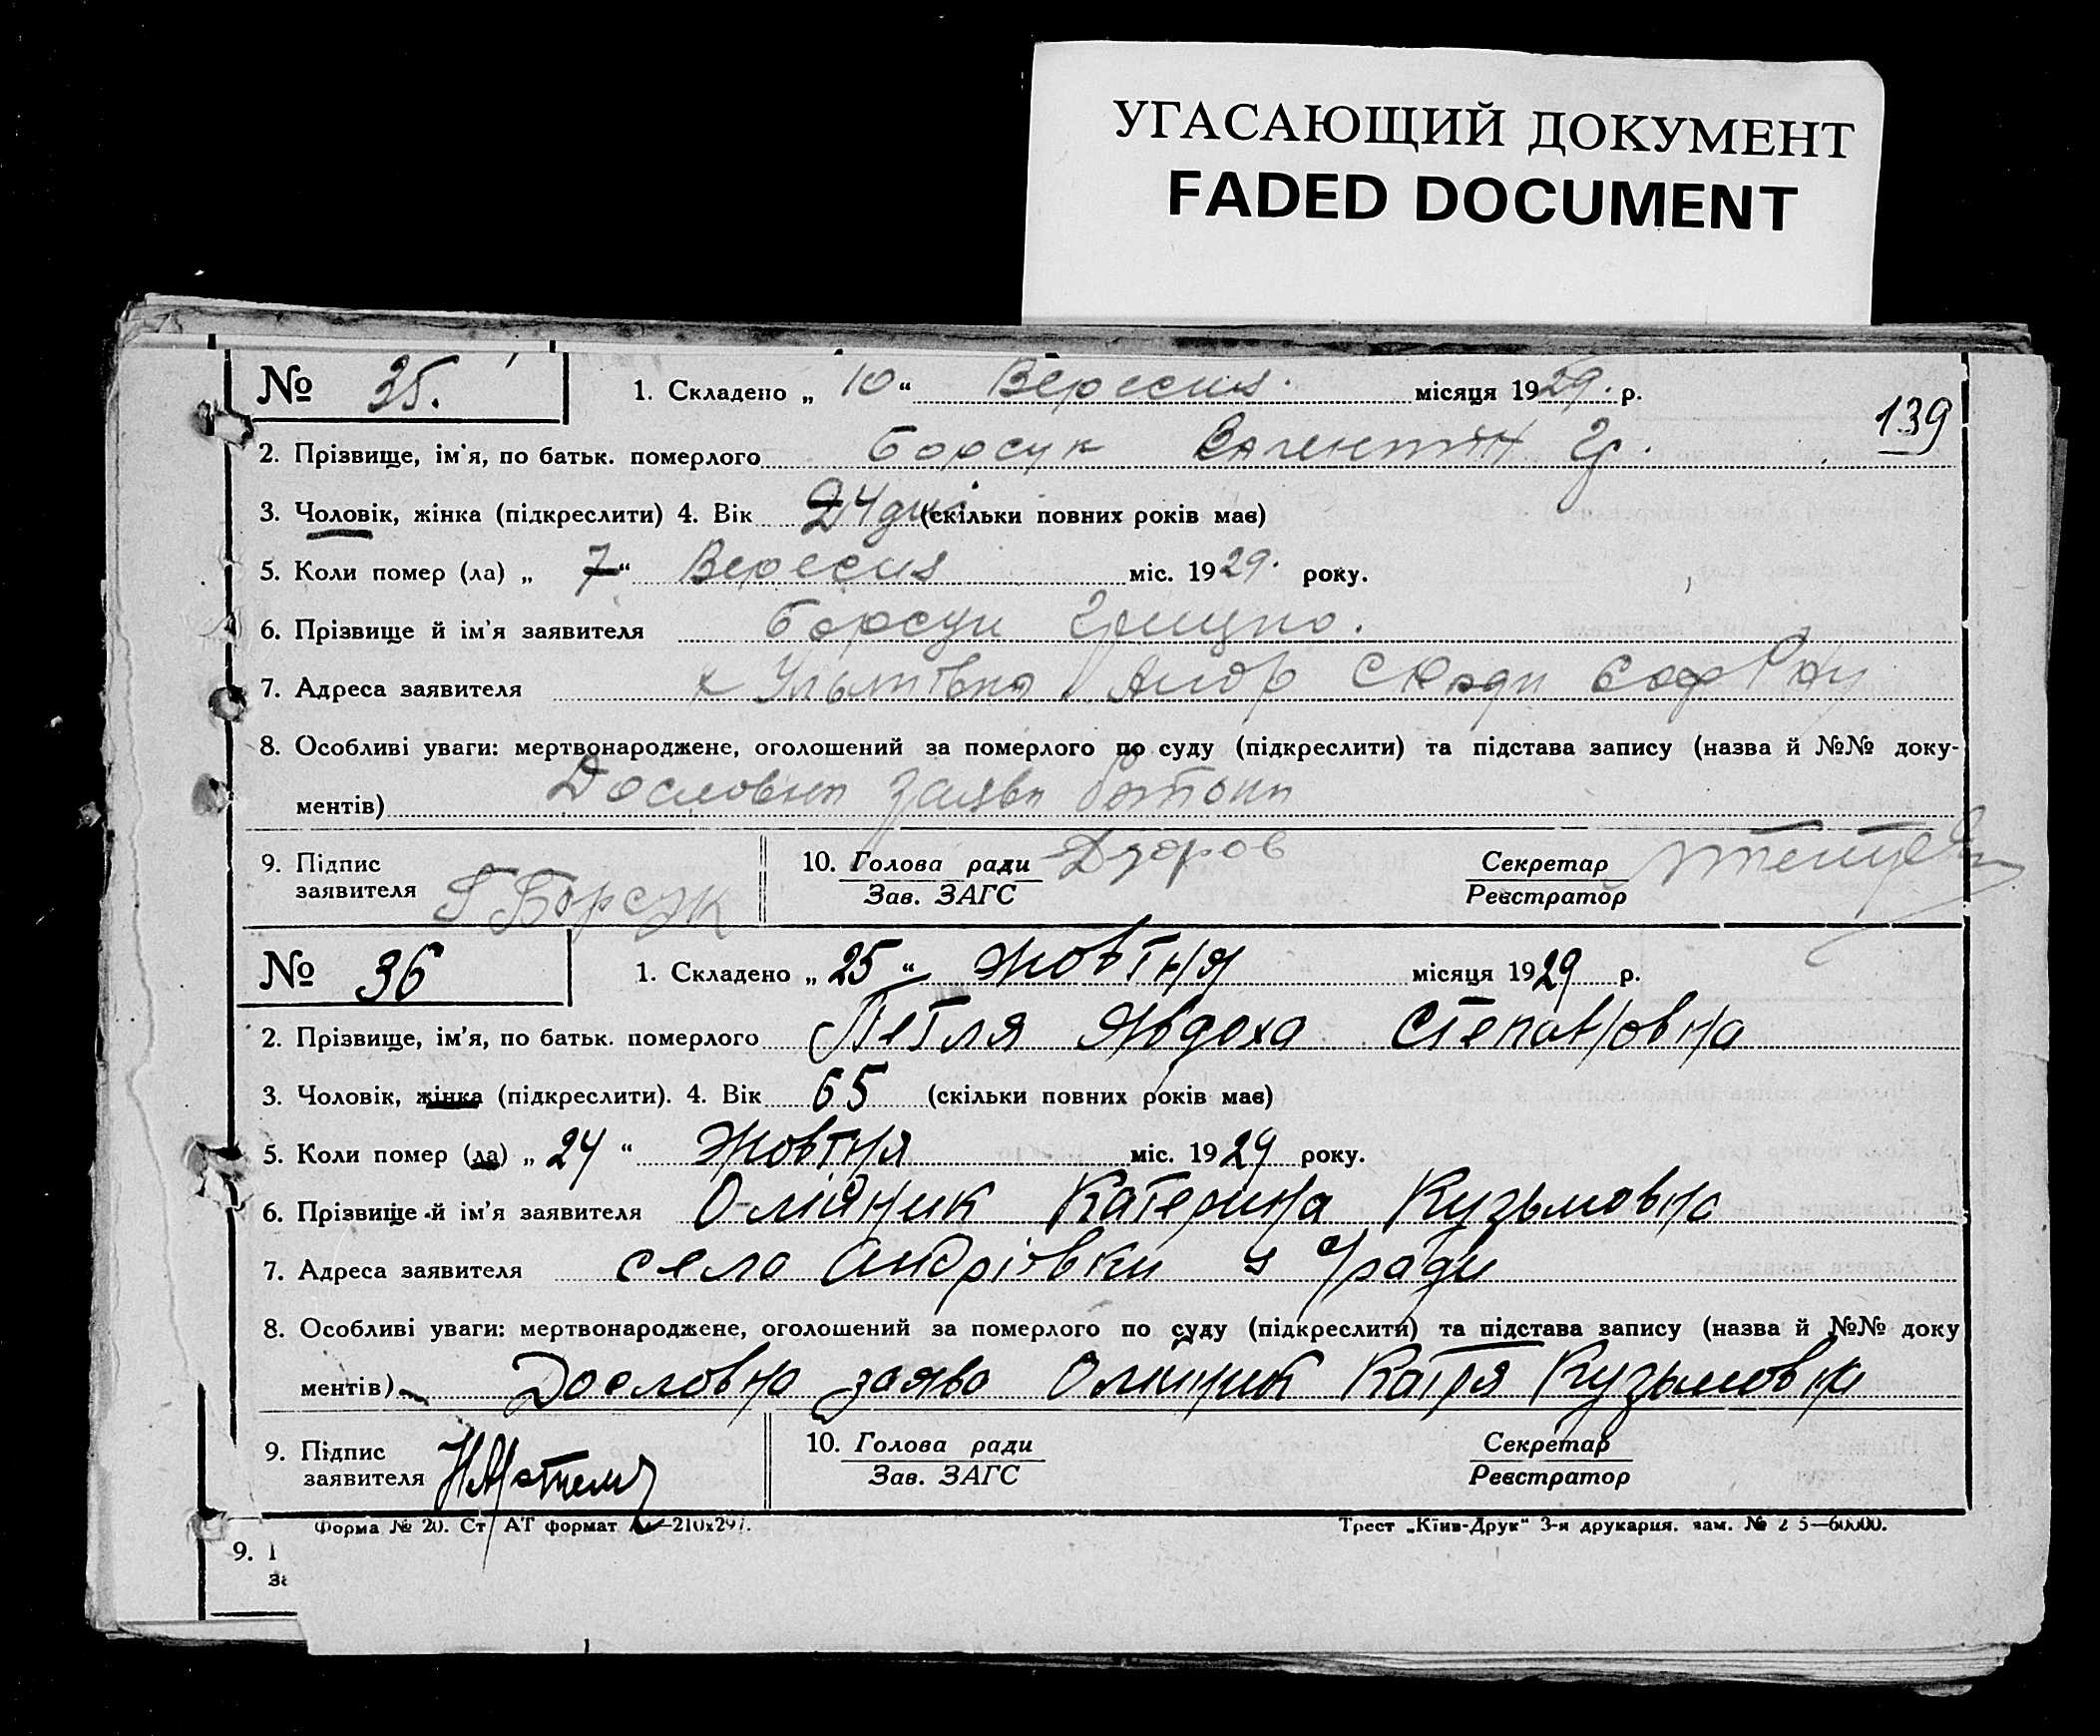 УГАСАЮЩИЙ ДОКУМЕНТ
FADED DOCUMENT
№ 35. 1. Складено „ 10 “ Вересня. місяця 1929. р.
139
2. Прізвище, ім'я, по батьк. померлого Борсук Валентин Гр.
3. Чоловік, жінка (підкреслити) 4. Вік 24 дні (скільки повних років має)
5. Коли помер (ла) „ 7 “ Вересня міс. 1929. року.
6. Прізвище й ім'я заявителя Борсук Грицко.
7. Адреса заявителя
8. Особливі уваги: мертвонароджене, оголошений за померлого по суду (підкреслити) та підстава запису (назва й №№ доку-
ментів) Дословна заява батька
9. Підпис заявителя Г Борсук 10. Голова ради Секретар
Зав. ЗАГС Реєстратор
№ 36 1. Складено „ 25 “ Жовтня місяця 1929 р.
2. Прізвище, ім'я, по батьк. померлого Петля Явдоха Степановна
3. Чоловік, жінка (підкреслити). 4. Вік 65 (скільки повних років має)
5. Коли помер (ла) „ 24 “ Жовтня міс. 1929 року.
6. Прізвище й ім'я заявителя Олійник Катерина Кузьмовна
7. Адреса заявителя село Андріовки
8. Особливі уваги: мертвонароджене, оголошений за померлого по суду (підкреслити) та підстава запису (назва й №№ доку
ментів) Дословна заява Олійник Катря Кузьмовна
9. Підпис заявителя 10. Голова ради Секретар
Зав. ЗАГС Реєстратор
Форма № 20. Ст АТ формат —210х297. Трест „Київ-Друк“ 3-я друкарня. зам. №
9.